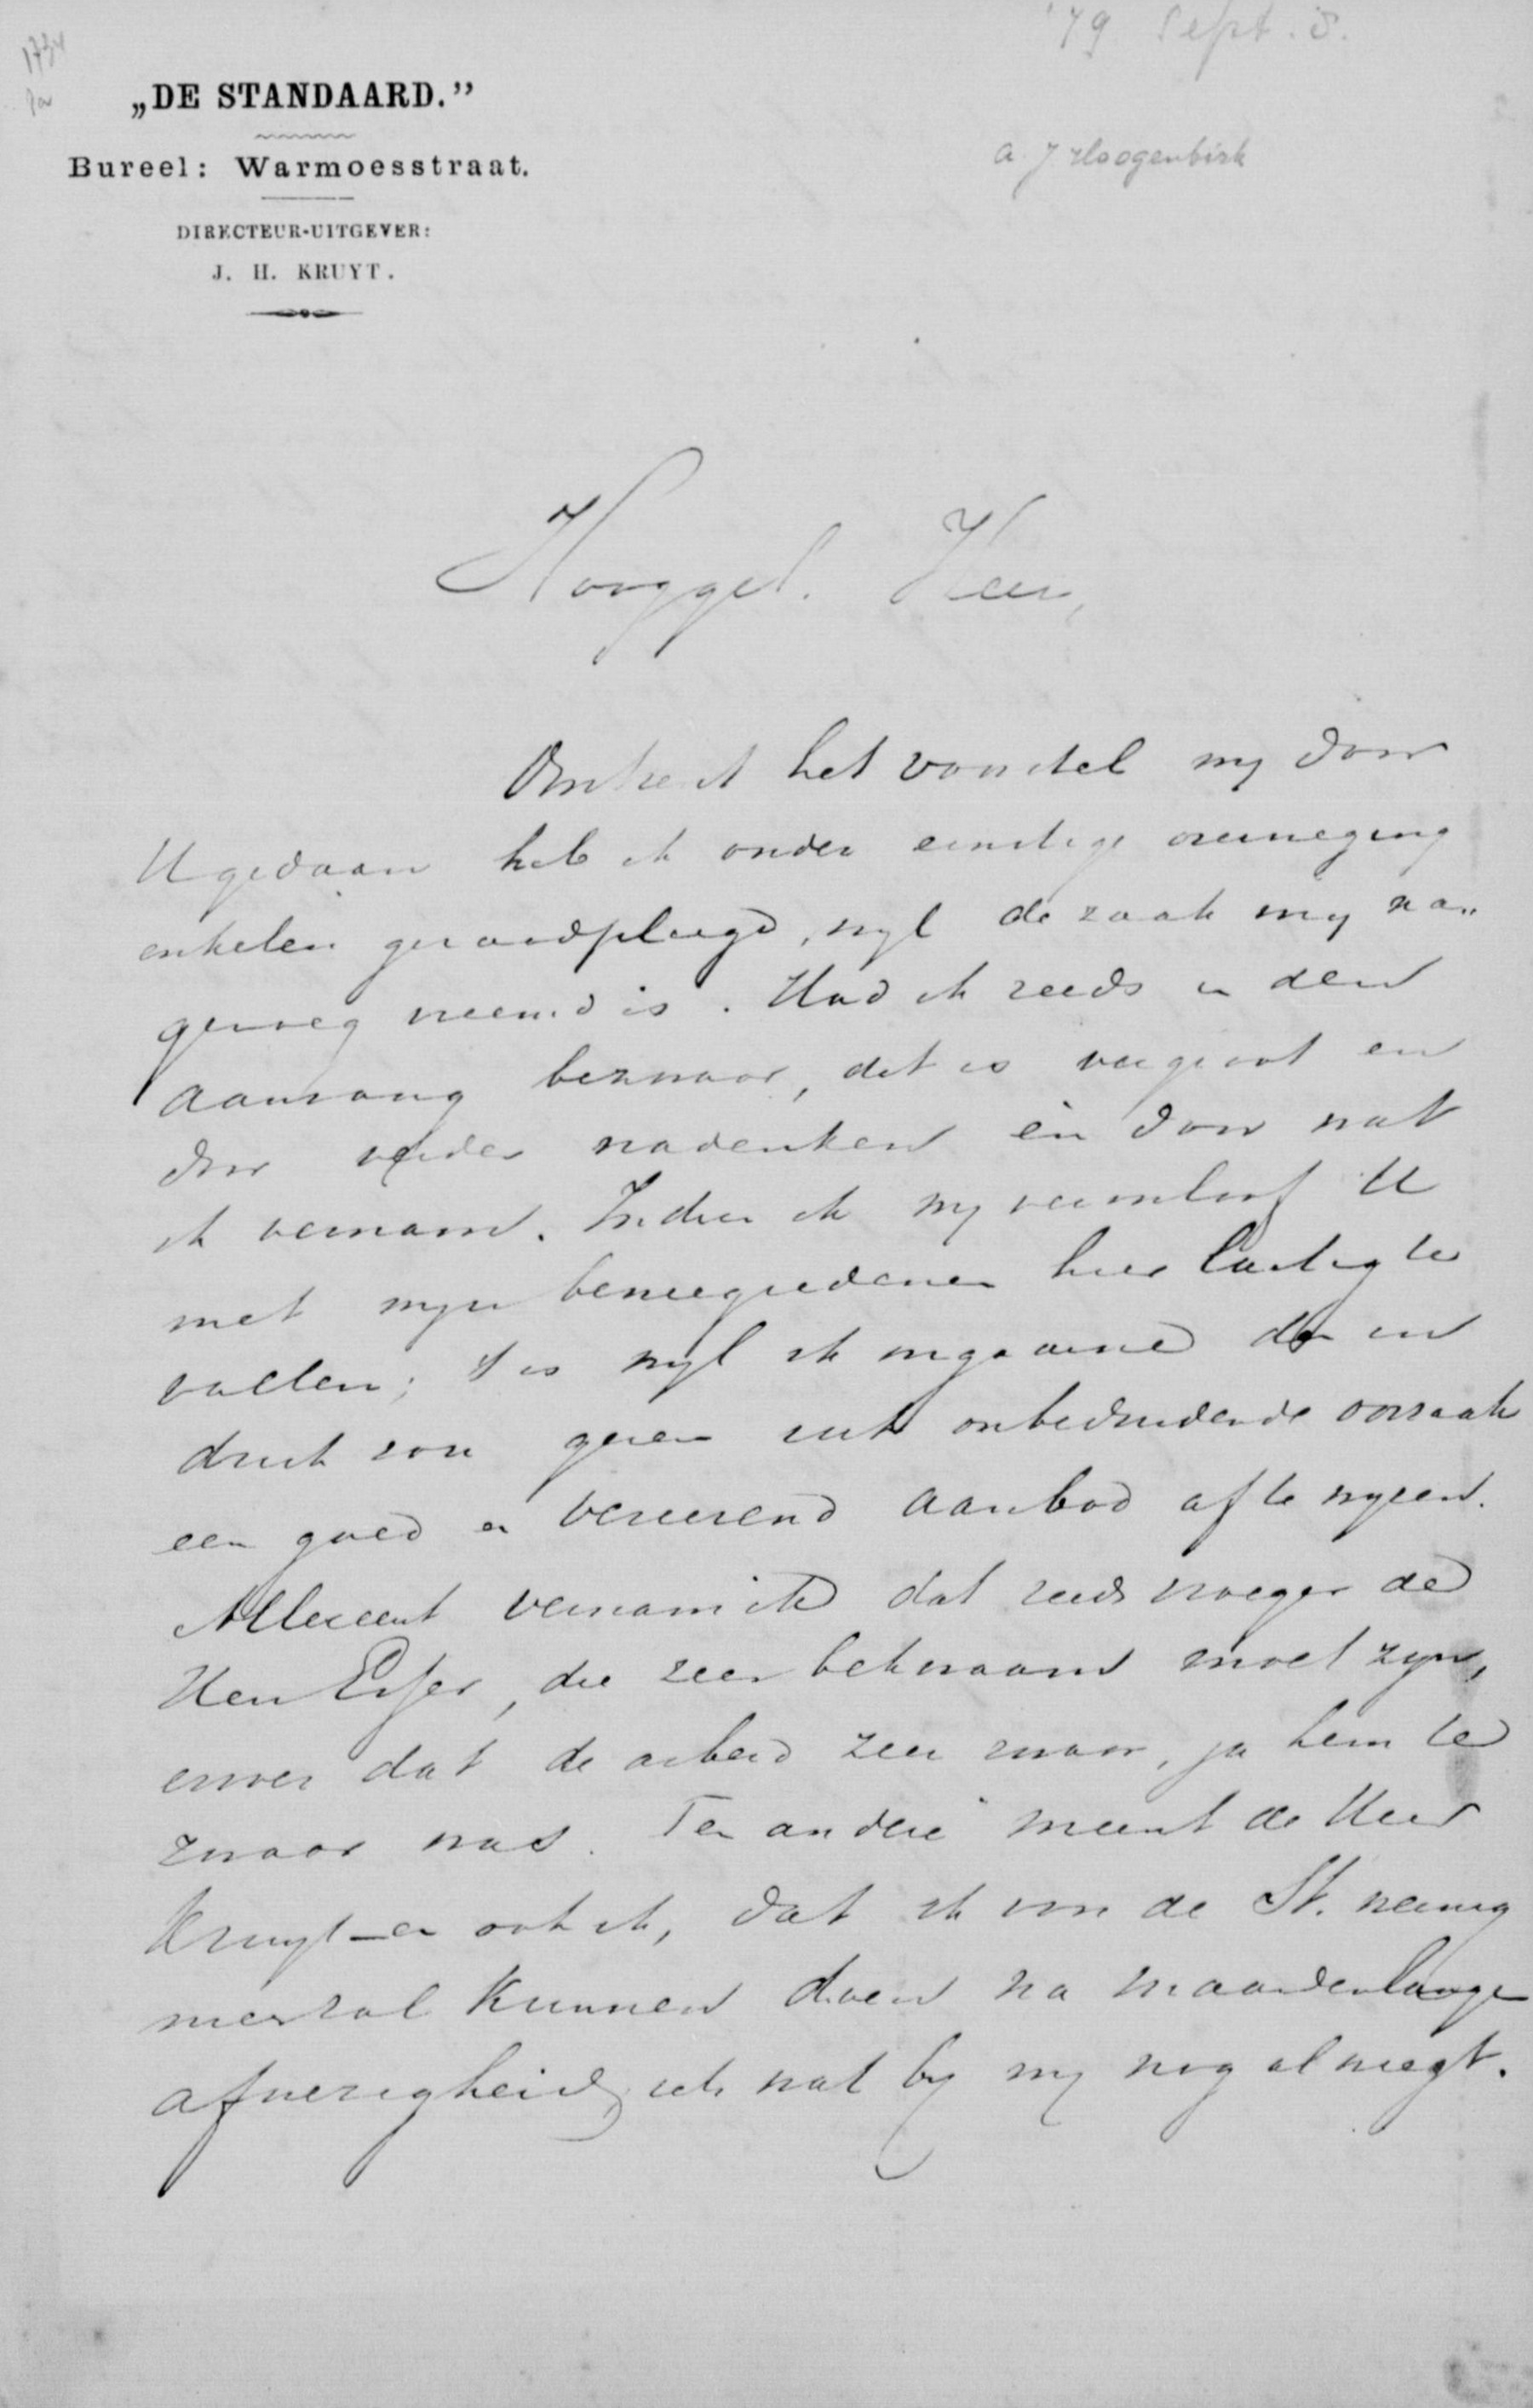 '79 Sept. 8.
1734
„DE STANDAARD.”
Bureel: Warmoesstraat.
A. J Hoogenbirk
DIRECTEUR-UITGEVER:
J. H. KRUYT.
Hooggel. Heer,
Omtrent het voorstel my door
U gedaan heb ik onder ernstige overweging
enkelen geraadpleegd, wyl de zaak my na"
genoeg vreemd is. Had ik reeds in den
aanvang bezwaar, dit is vergroot en
door verder nadenken èn door wat
ik vernam. Indien ik my veroorloof U
met myn beweegredenen hier lastig te
vallen; 't is wyl ik ongaarne den in
druk zou geven uit onbeduidende oorzaak
een goed en vereerend aanbod af te wyzen.
Allereerst vernam ik dat reeds vroeger de
Heer Esser, die zeer bekwaam moet zyn,
ervoer dat de arbeid zeer zwaar, ja hem te
zwaar was. Ten andere meent de Heer
Kruyt – en ook ik, dat ik voor de St. weinig
meer zal kunnen doen na maandenlange
afwezigheid, iets wat by my nog al weegt.